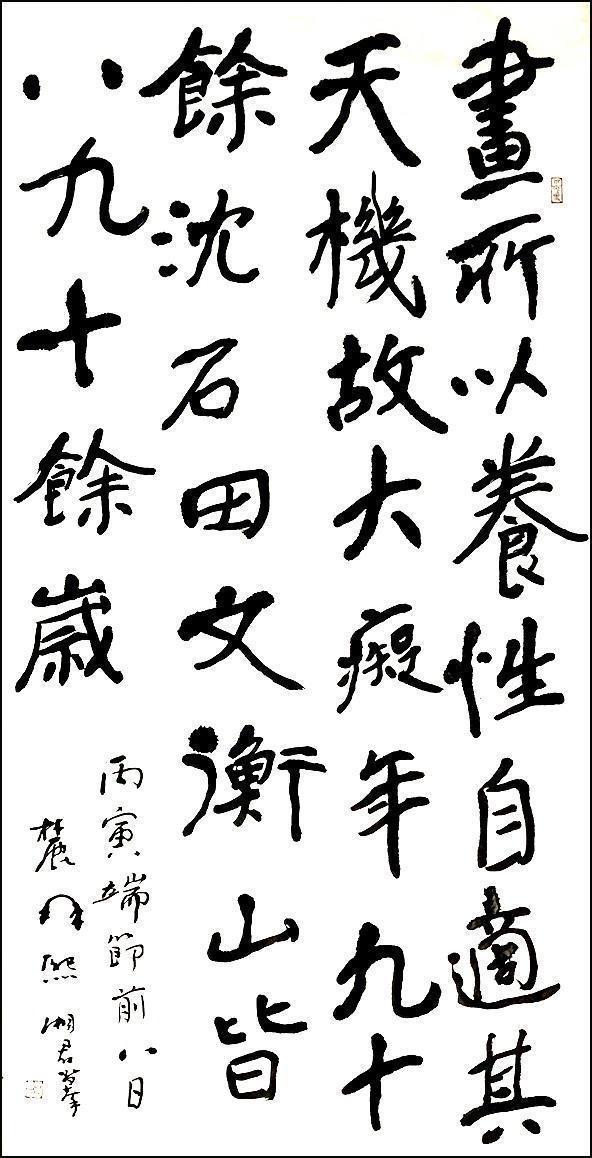 畫所以養性自適其
天機故大癡年九十
餘沈石田文衡山皆
八九十餘歲
丙寅端節前八日
農髯熙 湘君摹